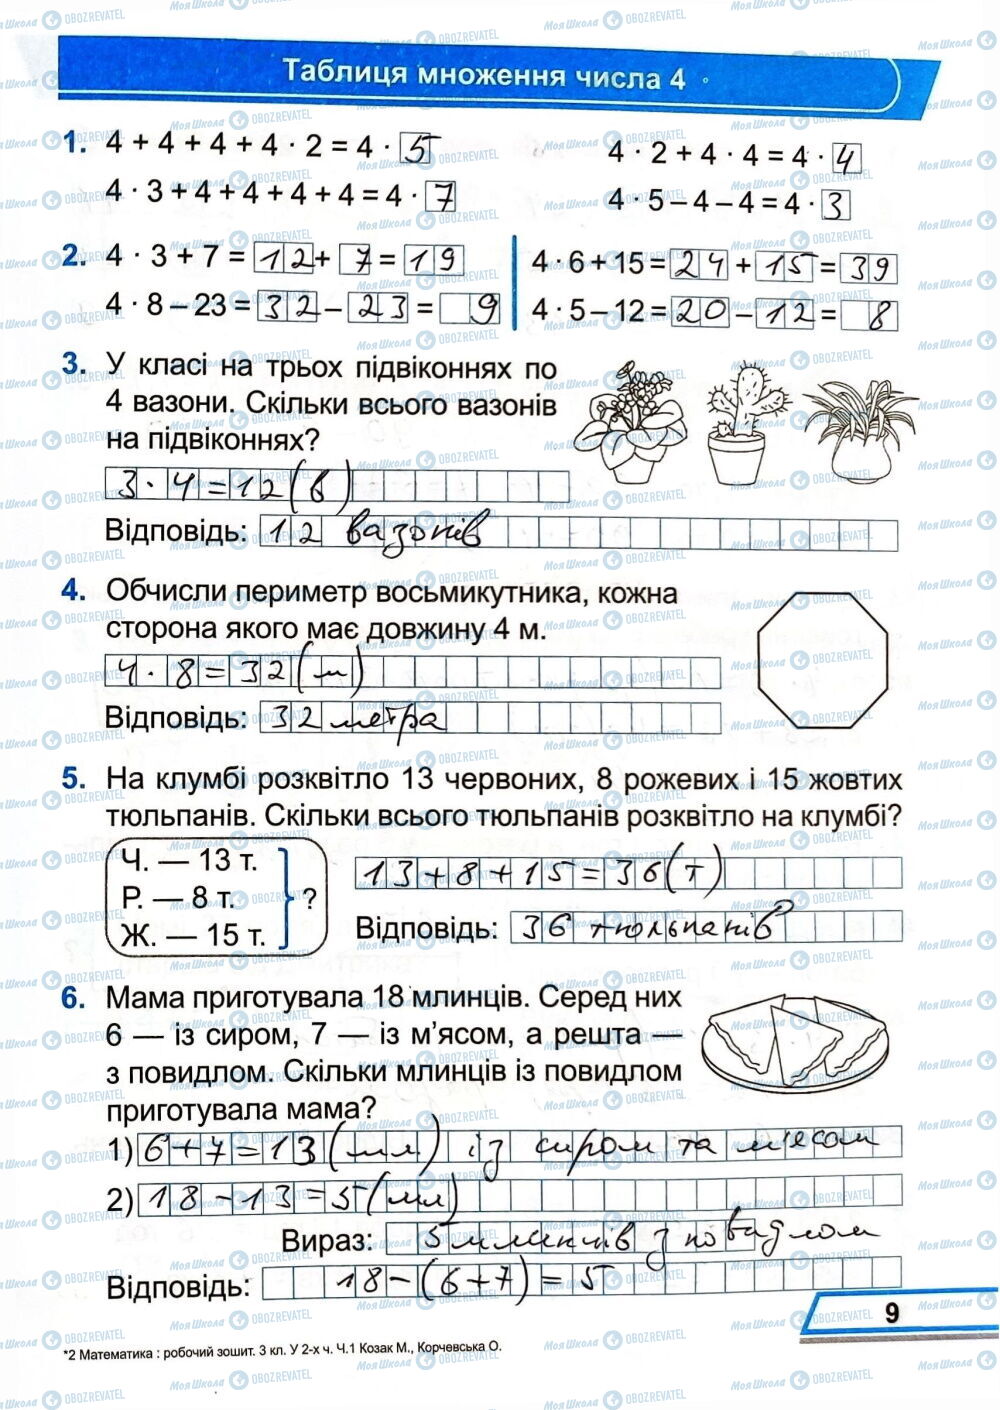 Таблиця множення числа 4
1. 4 + 4 + 4 + 4 · 2 = 4 · 5
4 · 2 + 4 · 4 = 4 · 4
4 · 3 + 4 + 4 + 4 + 4 = 4 · 7
4 · 5 – 4 – 4 = 4 · 3
2. 4 · 3 + 7 = 12 + 7 = 19
4 · 8 – 23 = 32 – 23 = 9
4 · 6 + 15 = 24 + 15 = 39
4 · 5 – 12 = 20 – 12 = 8
3. У класі на трьох підвіконнях по
4 вазони. Скільки всього вазонів
на підвіконнях?
3 · 4 = 12 (в)
Відповідь: 12 вазонів
4. Обчисли периметр восьмикутника, кожна
сторона якого має довжину 4 м.
4 · 8 = 32 (м)
Відповідь: 32 метра
5. На клумбі розквітло 13 червоних, 8 рожевих і 15 жовтих
тюльпанів. Скільки всього тюльпанів розквітло на клумбі?
Ч. — 13 т.
Р. — 8 т.
Ж. — 15 т.
?
13 + 8 + 15 = 36 (т)
Відповідь: 36 тюльпанів
6. Мама приготувала 18 млинців. Серед них
6 — із сиром, 7 — із м’ясом, а решта —
з повидлом. Скільки млинців із повидлом
приготувала мама?
1) 6 + 7 = 13 (мл) із сиром та м'ясом
2) 18 – 13 = 5 (мл)
Вираз: 5 млинців з повидлом
Відповідь: 18 – (6 + 7) = 5
9
*2 Математика : робочий зошит. 3 кл. У 2-х ч. Ч.1 Козак М., Корчевська О.
МояШкола OBOZREVATEL